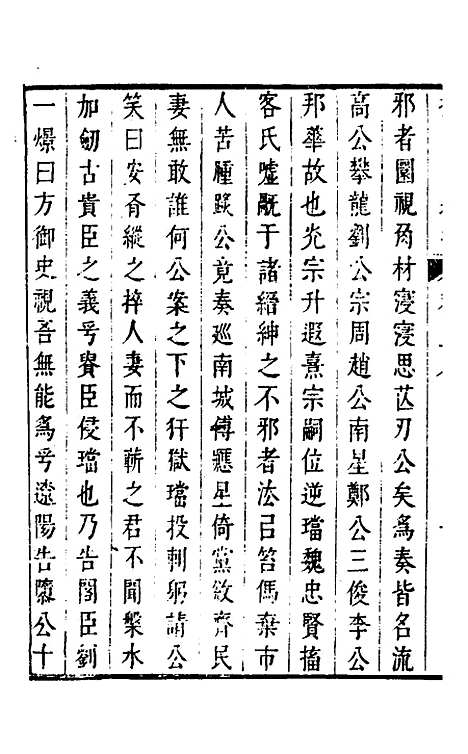 邪者圜視肏材寖寖思苡刃公矣爲奏皆名流
高公攀龍劉公宗周趙公南星鄭公三俊李公
邦華故也光宗升遐熹宗嗣位逆璫魏忠賢搐
客氏噓戤于諸縉紳之不邪者法㠯笞傌棄市
人苦腫䠱公竟奏巡南城傅應星倚黨斂齊民
妻無敢誰何公案之下之犴獄璫投刺躬請公
笑曰安肏縱之捽人妻而不蘄之君不聞槃水
加劒古貴臣之義乎賽臣侵璫也乃告閣臣劉
一燝曰方御史視吾無能爲乎遼陽告隳公十